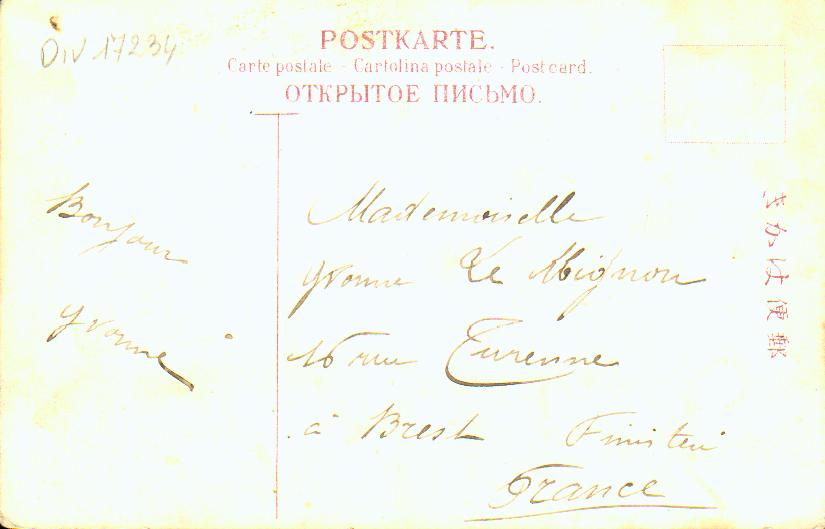 Div 17234
POSTKARTE.
Carte postale - Cartolina postale - Post card.
ОТКРЫТОЕ ПИСЬМО.
Bonjour
Yvonne
Mademoiselle
Yvonne Le Mignon
16 rue Turenne
à Brest Finistère
France
郵便はかき